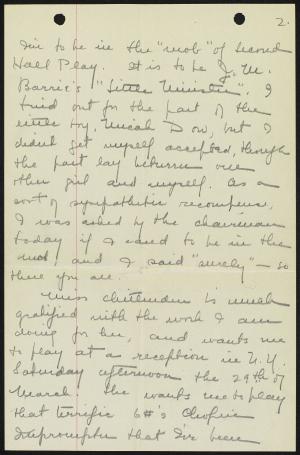 2.
I'm to be in the "mob" of Second
Hall Play. It is to be J. M.
Barrie's "Little Minister". I
tried out for the part of the
little boy, Micah Dow, but I
didn't get myself accepted, though
the part lay between one
other girl and myself. As a
sort of sympathetic recompense,
I was asked by the chairman
today if I cared to be in the
mob, and I said "surely" – so
there you are.
Miss Chittenden is much
gratified with the work I am
doing for her, and wants me
to play at a reception in N.Y.
Saturday afternoon the 29th of
March. She wants me to play
that terrific 6#'s Chopin
Impromptu that I've been